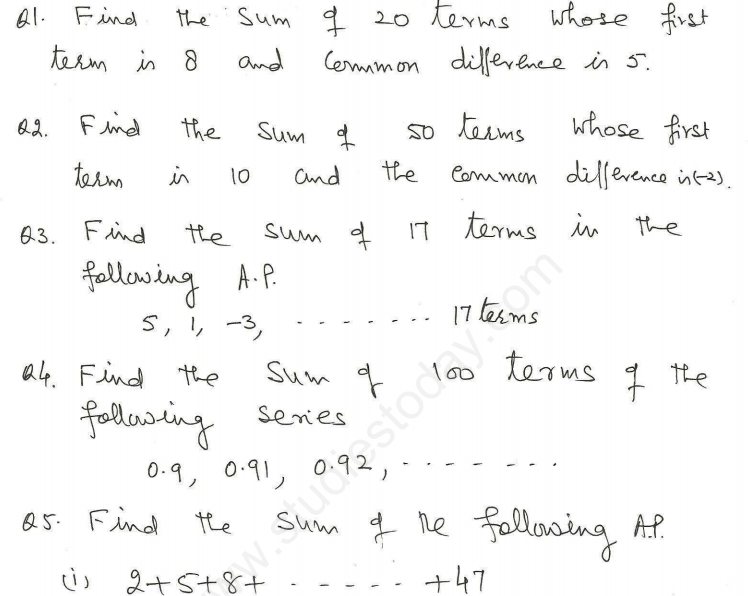 Q1. Find the Sum of 20 terms whose first
term is 8 and Common difference is 5.
Q2. Find the sum of 50 terms whose first
term is 10 and the common difference is (-2).
Q3. Find the sum of 17 terms in the
following A.P.
5, 1, -3, - - - - - - - - 17 terms
Q4. Find the Sum of 100 terms of the
following series
0.9, 0.91, 0.92, - - - - - - -
Q5. Find the Sum of the following A.P.
(i) 2+5+8+ - - - - - - +47
www.studiestoday.com